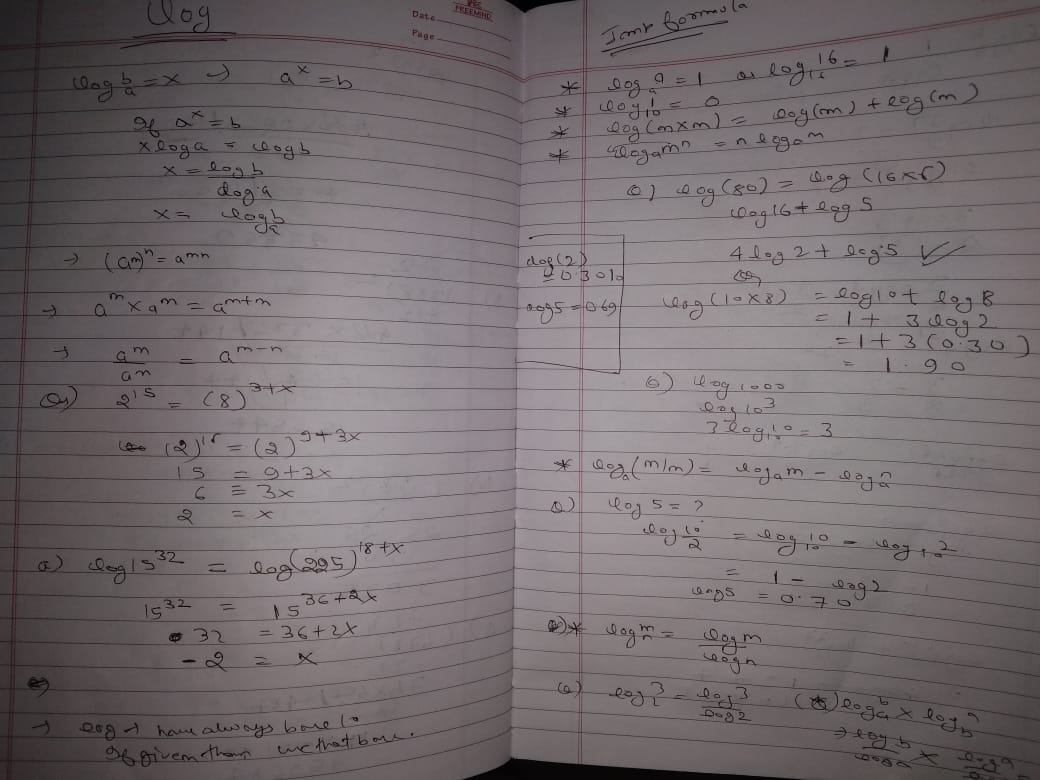 log
Date
Page
FREEMIND
log_a b = x → a^x = b
If a^x = b
x log a = log b
x = log b / log a
x = log_a b
→ (a^m)^n = a^mn
→ a^m × a^n = a^m+n
→ a^m / a^n = a^m-n
Q) 2^15 = (8)^3+x
(2)^15 = (2)^9+3x
15 = 9+3x
6 = 3x
2 = x
Q) log 15^32 = log(225)^18+x
15^32 = 15^36+2x
32 = 36+2x
-2 = x
→ log → have always base 10
If given then use that base.
Imp formula
* log_a a = 1 or log_16 16 = 1
* log_10 1 = 0
* log(m×n) = log(m) + log(n)
* log_a m^n = n log_a m
Q) log(80) = log(16×5)
log 16 + log 5
4 log 2 + log 5 ✓
or
log(2) = 0.3010
log 5 = 0.69
log(10×8) = log 10 + log 8
= 1 + 3 log 2
= 1 + 3(0.30)
= 1.90
Q) log 1000
log 10^3
3 log_10 10 = 3
* log_a(m/n) = log_a m - log_a n
Q) log 5 = ?
log 10/2 = log_10 10 - log_10 2
= 1 - log 2
log 5 = 0.70
* log_n m = log m / log n
Q) log_2 3 = log 3 / log 2
(*) log_a b × log_b a
→ log b / log a × log a